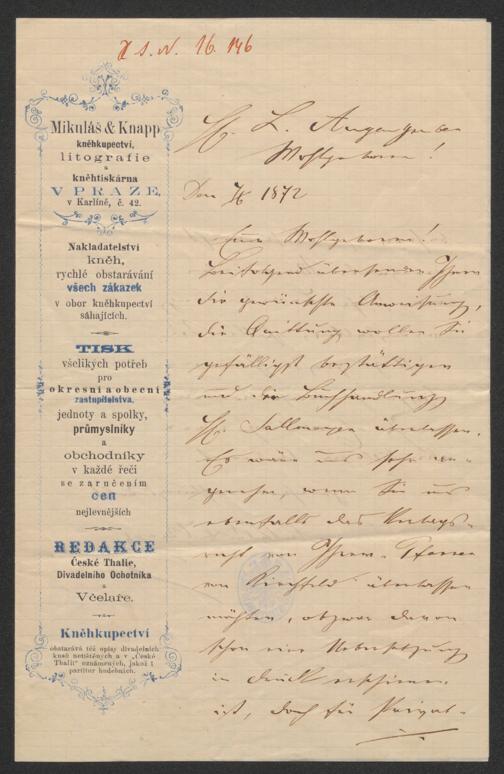 I. N. 16.146
Mikuláš & Knapp
kněhkupectví,
litografie
a
kněhtiskárna
V PRAZE,
v Karlíně, č. 42.
Nakladatelství
kněh,
rychlé obstarávání
všech zákazek
v obor kněhkupectví
sáhajících.
TISK
všelikých potřeb
pro
okresní a obecní
zastupitelstva,
jednoty a spolky,
průmyslníky
a
obchodníky
v každé řeči
se zaručením
cen
nejlevnějších
REDAKCE
České Thalie,
Divadelního Ochotníka
a
Včelaře.
Kněhkupectví
obstarává též opisy divadelních
kusů netištěných a v „České
Thalii" oznámených, jakož i
partitur hudebních.
H. L. Anzengruber
Wohlgeboren!
Den 1872
Euer Wohlgeboren!
Beifolgend übersenden Ihnen
die gewünschte Anweisung,
die Quittung wollen Sie
gefälligst bestättigen
und der Buchhandlung
H. Sallmayer überlassen.
Es wäre uns sehr an-
genehm, wenn Sie uns
ebenfalls das Verlags-
recht von Ihrem „Pfarrer
von Kirchfeld" überlassen
möchten, obzwar davon
schon eine Uebersetzung
in Druck erschienen
ist, doch für Privat-